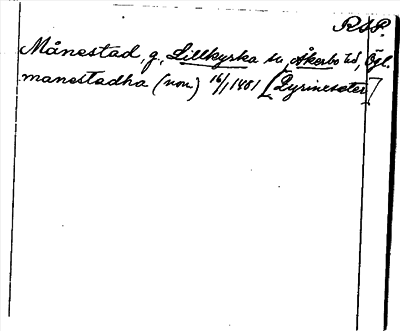 RAP.
Månestad, g., Lillkyrka sn, Åkerbo hd, Ögl.
manestadha (non.) 16/1 1481 [Gyrinesäter]